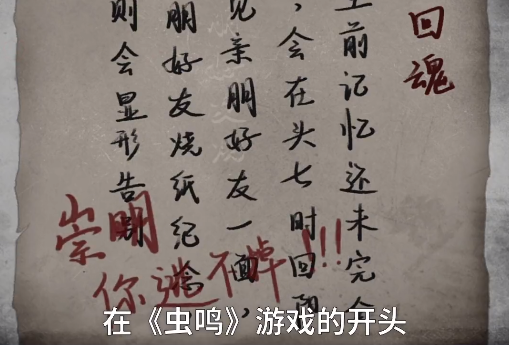 回魂
前记忆还未完全
，会在头七时回阳
见亲朋好友一面，
朋好友烧纸纪念，
则会显形告别
崇明
你逃不掉!!!
在《虫鸣》游戏的开头